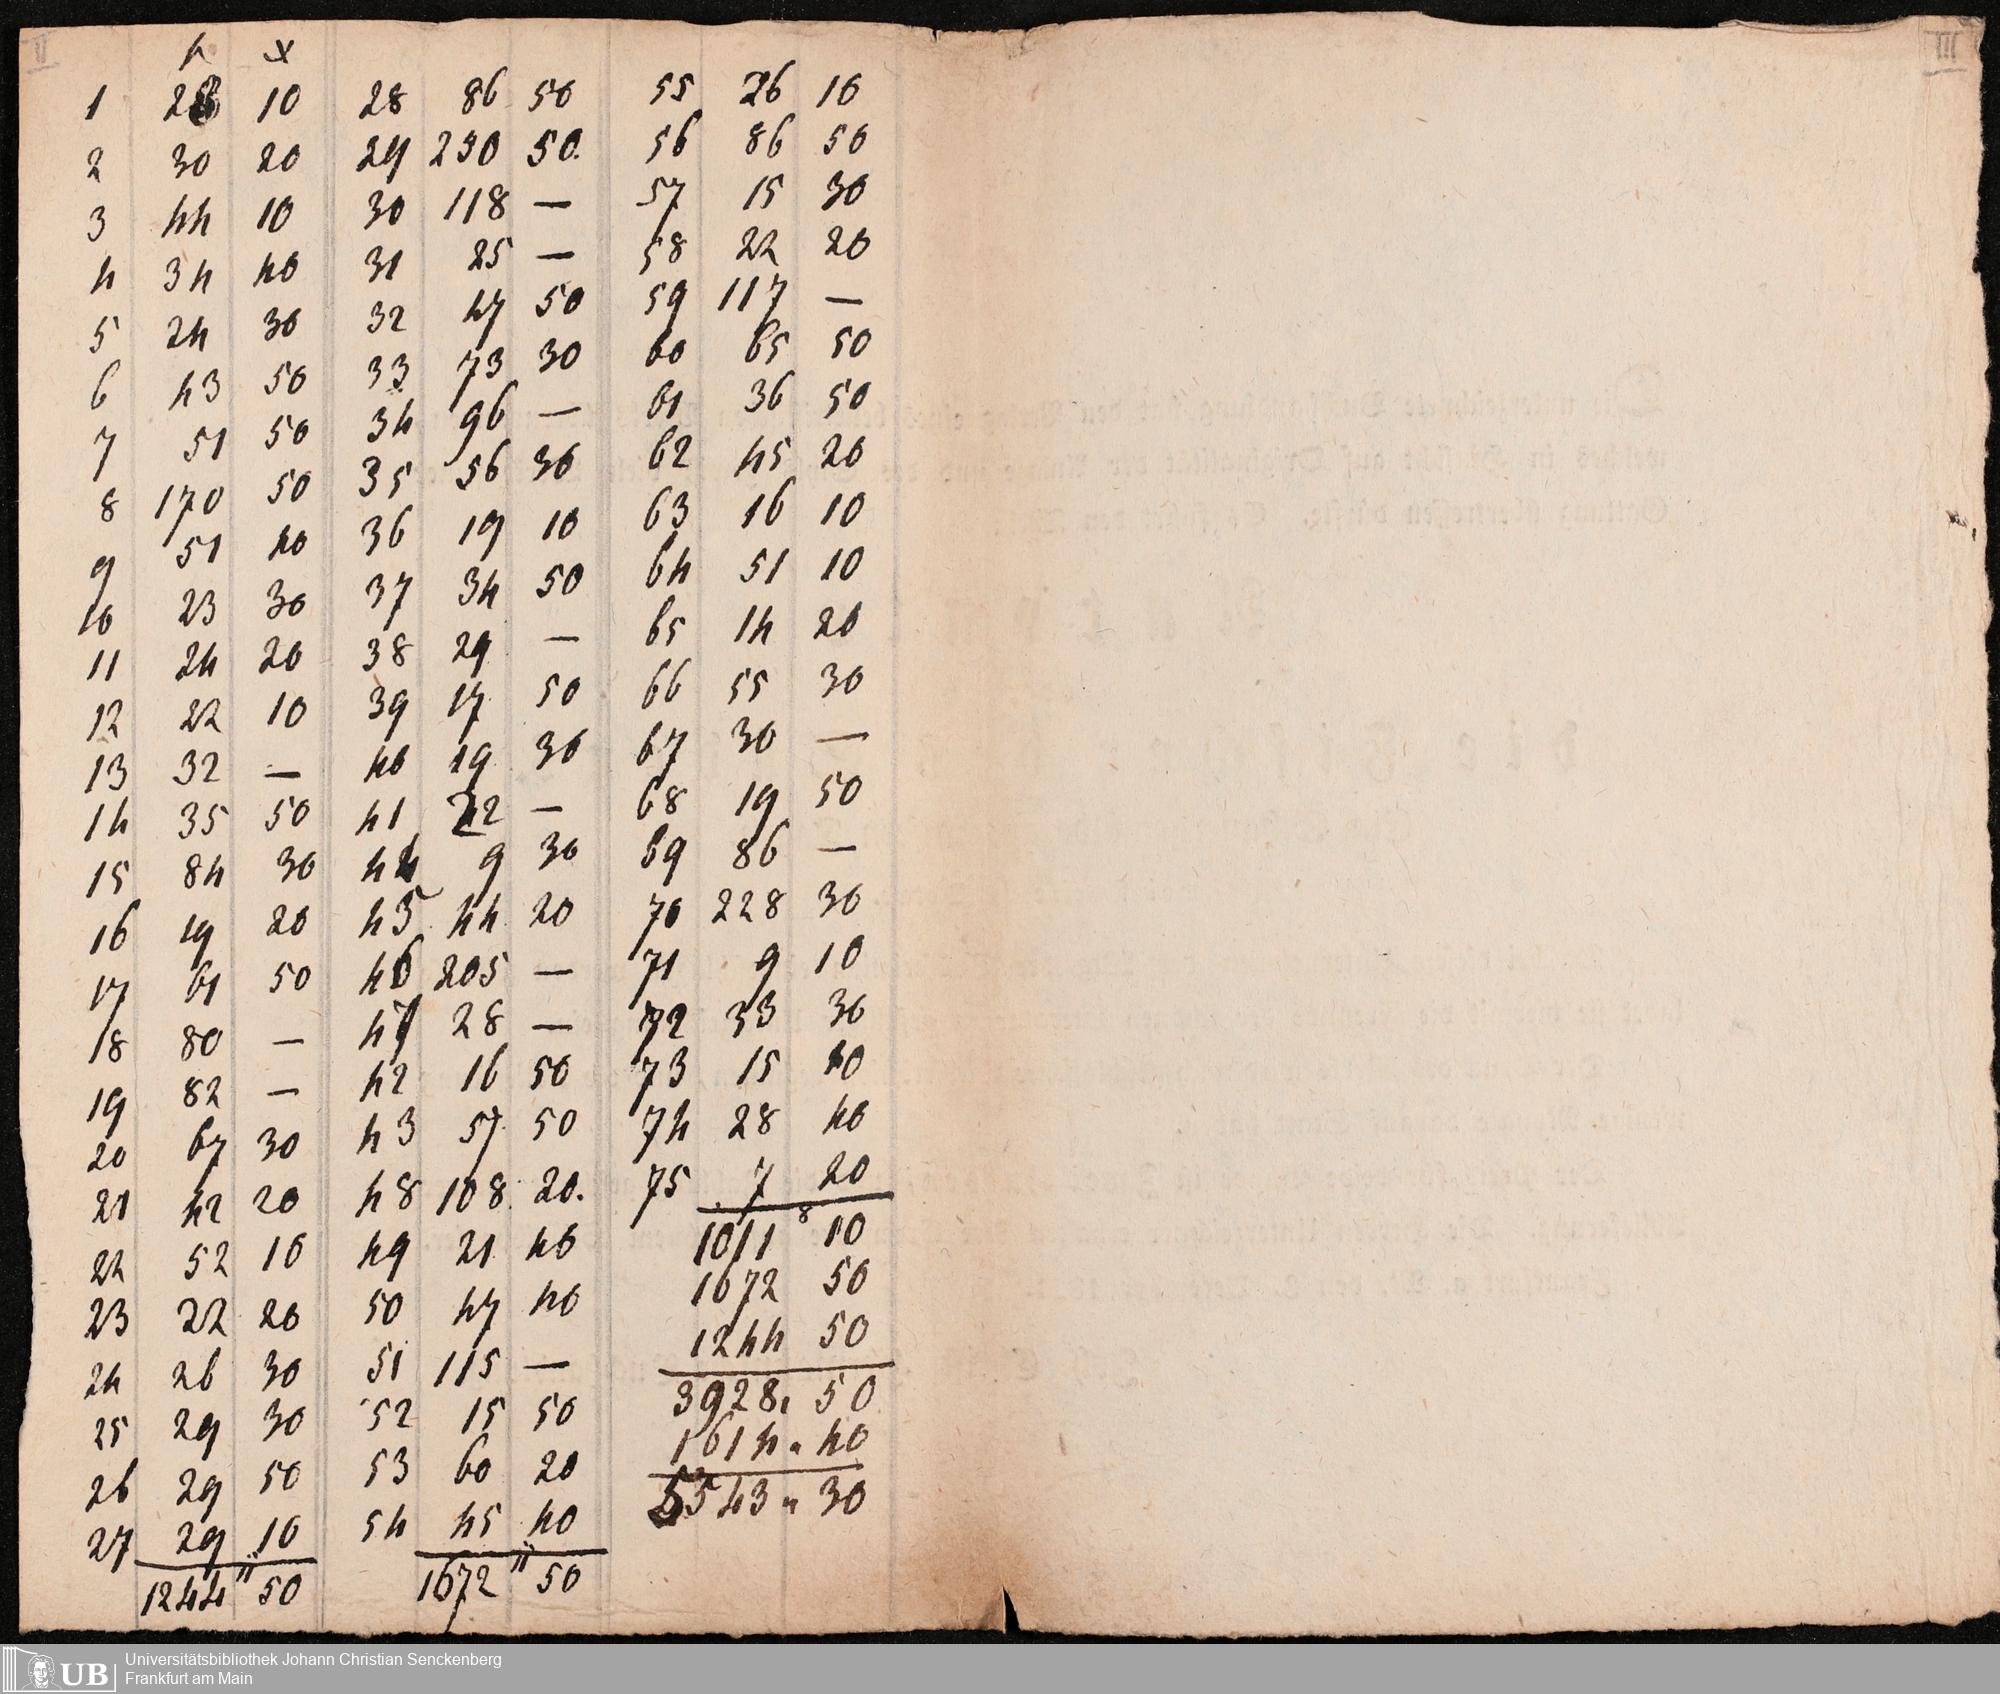 fl x
1 28 10
2 30 20
3 44 10
4 34 40
5 24 30
6 43 50
7 51 50
8 170 50
9 51 40
10 23 30
11 24 20
12 22 10
13 32 —
14 35 50
15 84 30
16 19 20
17 61 50
18 80 —
19 82 —
20 67 30
21 42 20
22 52 10
23 22 20
24 26 30
25 29 30
26 29 50
27 29 10
11
1244 50
28 86 50
29 230 50.
30 118 —
31 25 —
32 47 50
33 73 30
34 96 —
35 56 30
36 19 10
37 34 50
38 29 —
39 17 50
40 19 30
41 42 —
44 9 30
45 44 20
46 205 —
47 28 —
42 16 50
43 57 50
48 108 20.
49 21 40
50 47 40
51 115 —
52 15 50
53 60 20
54 45 40
11
1672 50
55 26 10
56 86 50
57 15 30
58 22 20
59 117 —
60 65 50
61 36 50
62 45 20
63 16 10
64 51 10
65 14 20
66 55 30
67 30 —
68 19 50
69 86 —
70 228 30
71 9 10
72 33 30
73 15 10
74 28 40
75 7 20
8
1011 10
1672 50
1244 50
3928 50
1614 " 40
5543 " 30
II
III
UB
Universitätsbibliothek Johann Christian Senckenberg
Frankfurt am Main